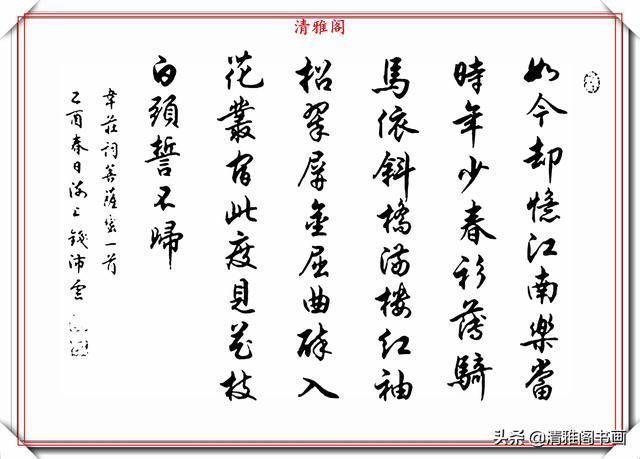 清雅阁
如今却憶江南樂當
時年少春衫薄騎
馬依斜橋滿樓紅袖
招翠屏金屈曲醉入
花叢宿此度見花枝
白頭誓不歸
韋莊詞菩薩蠻一首
乙酉春日海上錢沛雲
头条 @清雅阁书画